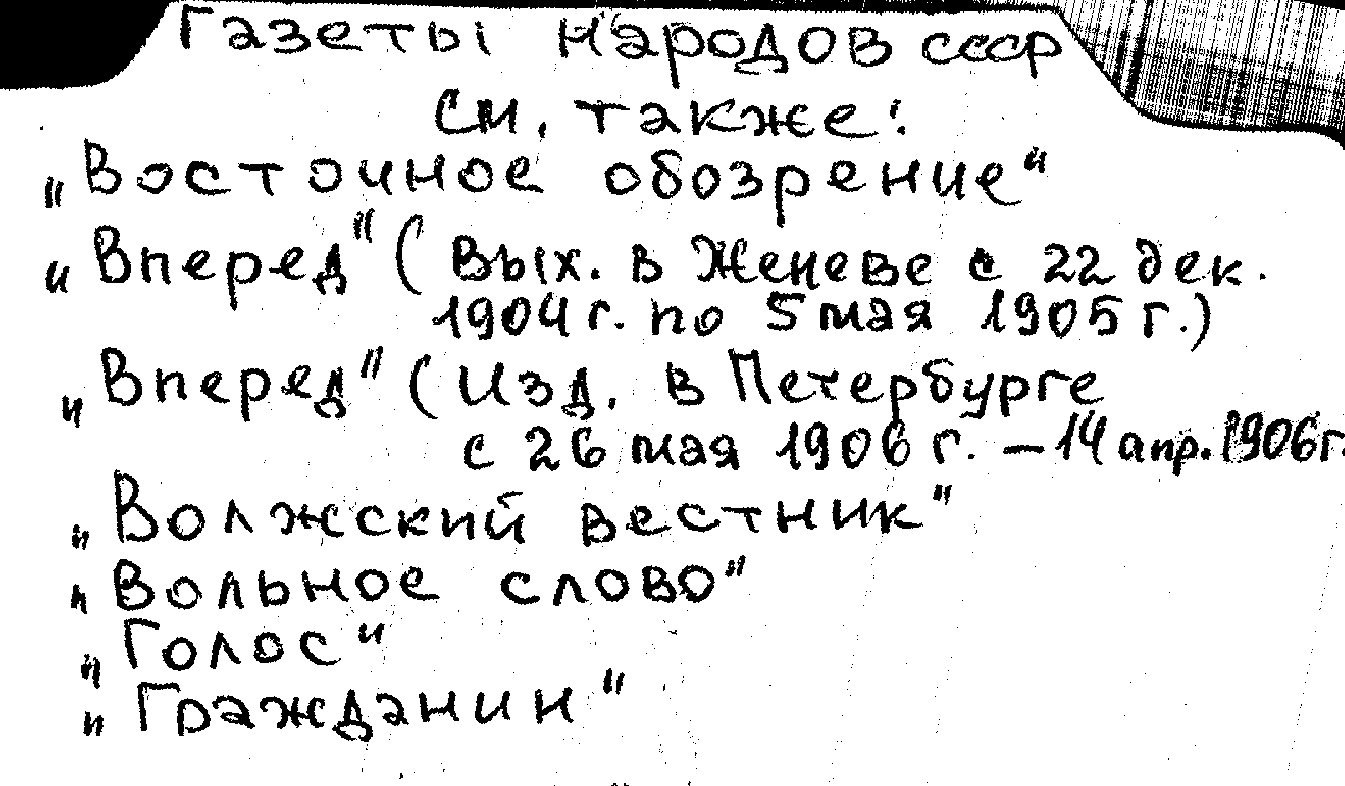 Газеты народов СССР
см. также:
„Восточное обозрение“
„Вперед“ (Вых. в Женеве с 22 дек.
1904 г. по 5 мая 1905 г.)
„Вперед“ (Изд. в Петербурге
с 26 мая 1906 г. – 14 апр. 1906 г.
„Волжский вестник“
„Вольное слово“
„Голос“
„Гражданин“